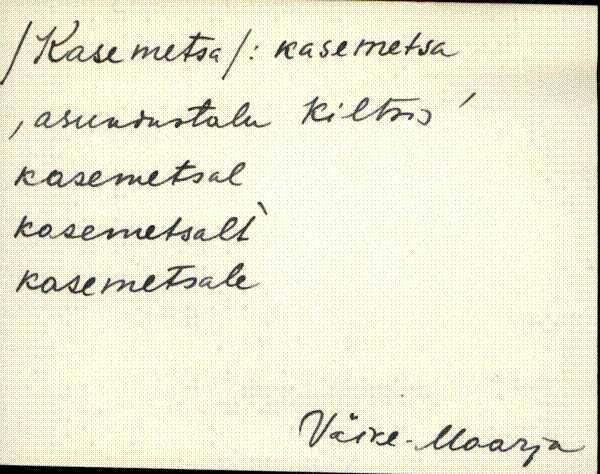 /Kasemetsa/: kasemetsa
‚asundustalu Kiltsis’
kasemetsal
kasemetsalt`
kasemetsale
Väike-Maarja